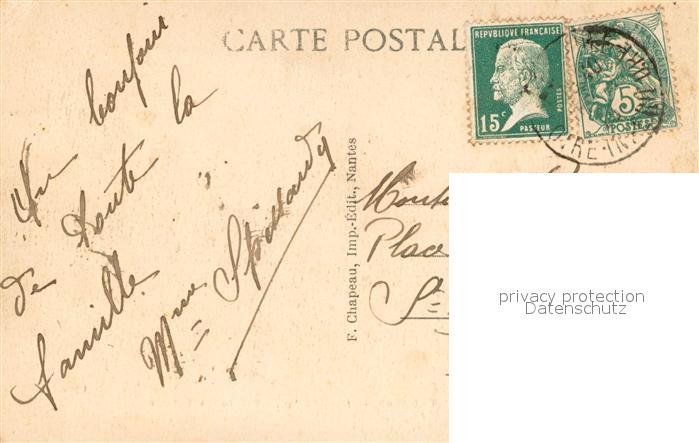 CARTE POSTAL
RÉPUBLIQUE FRANÇAISE
15c
POSTES
PASTEUR
5
POSTES
RE-IN
Un bonjour
de toute la
famille
Mme
F. Chapeau, Imp.-Édit., Nantes
Place
St
privacy protection
Datenschutz